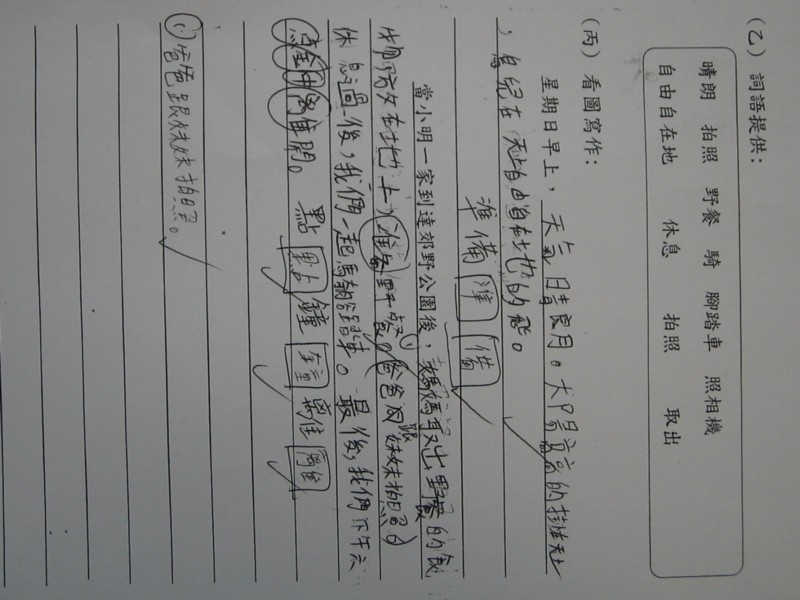 (乙) 詞語提供:
晴朗 拍照 野餐 騎 腳踏車 照相機
自由自在地 休息 拍照 取出
(丙) 看圖寫作:
星期日早上,天氣晴朗。太陽高高的掛在
,鳥兒在 自由自在地的飛。
準備 準 備
當小明一家到達郊野公園後,媽媽取出野餐的食
物放在地上,準備野餐。(1)爸爸 跟妹妹拍照
休息過後,我們一起騎 踏車。最後,我們下午六
點鐘離開。 點 點 鐘 鐘 離 離
(1)爸爸跟妹妹拍照。